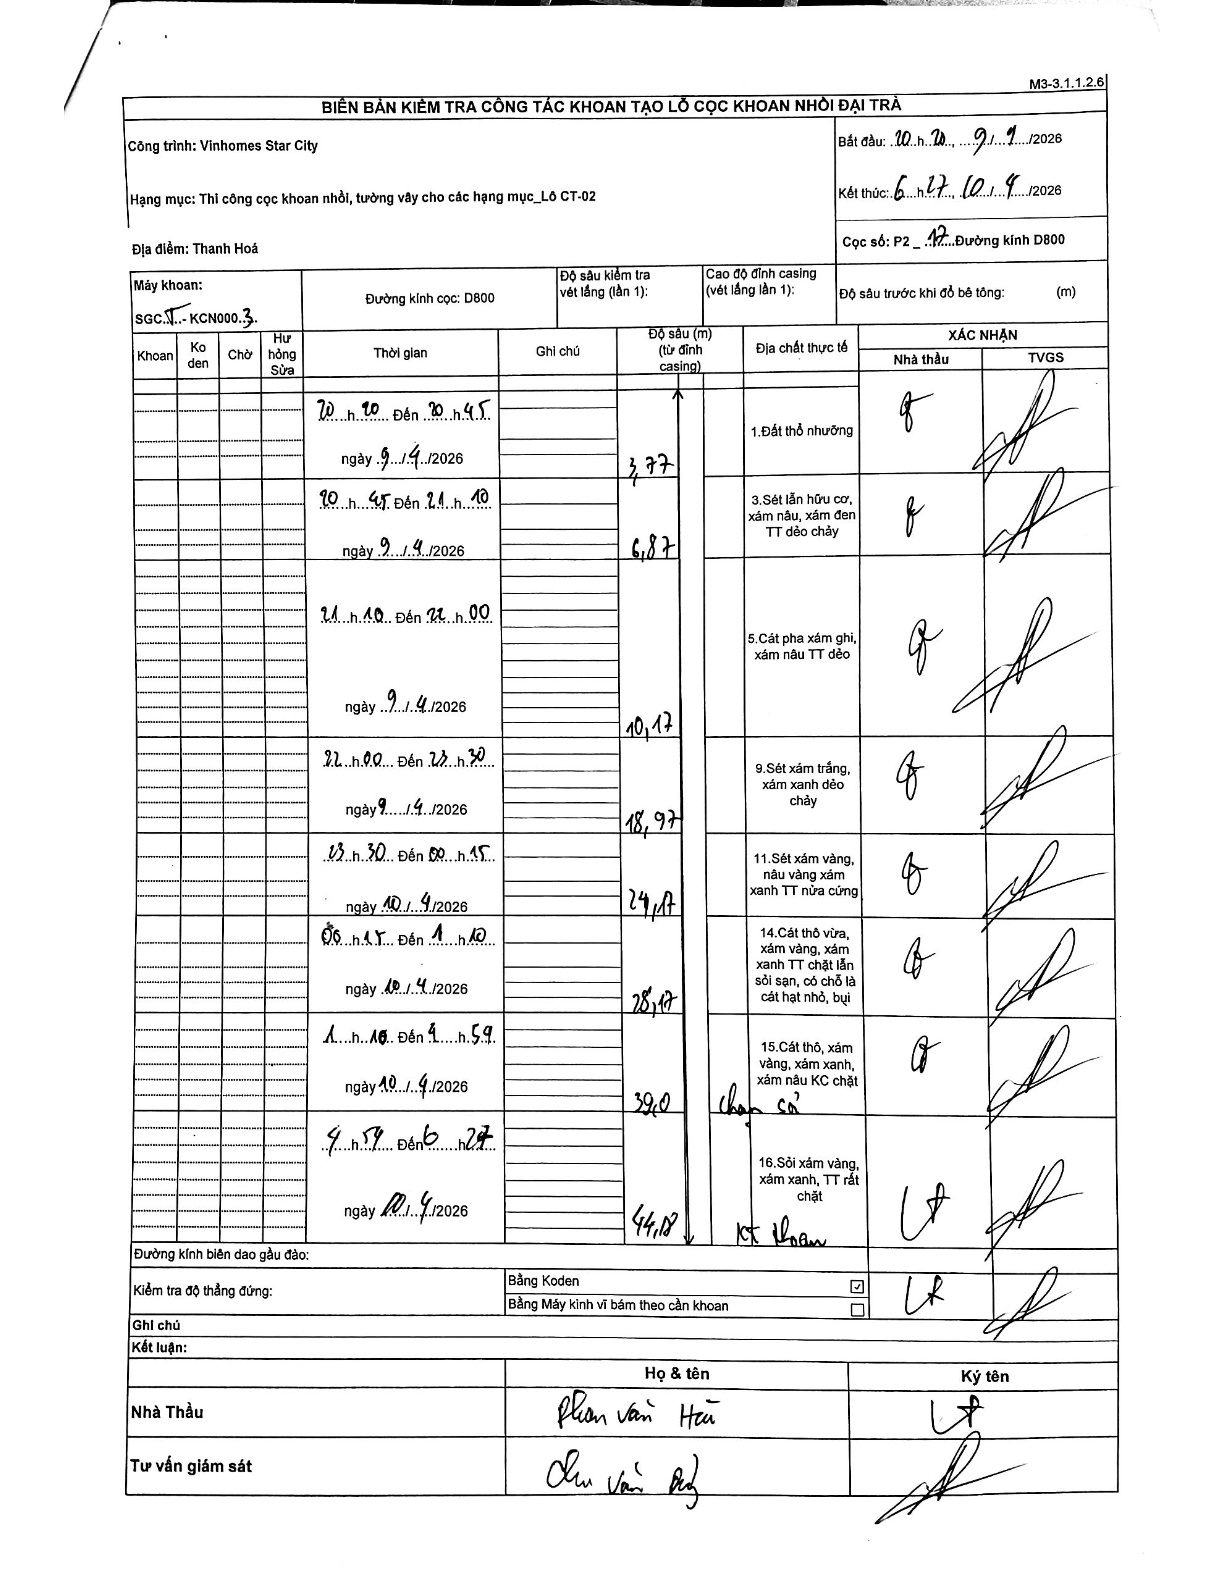 M3-3.1.1.2.6
BIÊN BẢN KIỂM TRA CÔNG TÁC KHOAN TẠO LỖ CỌC KHOAN NHỒI ĐẠI TRÀ
Công trình: Vinhomes Star City
Bắt đầu: 20 h 20, 9/4/2026
Hạng mục: Thi công cọc khoan nhồi, tường vây cho các hạng mục_Lô CT-02
Kết thúc: 6 h 27, 10/4/2026
Địa điểm: Thanh Hoá
Cọc số: P2 _ 17 Đường kính D800
Máy khoan:
SGC.T.- KCN000.3.
Đường kính cọc: D800
Độ sâu kiểm tra vét lắng (lần 1):
Cao độ đỉnh casing (vét lắng lần 1):
Độ sâu trước khi đổ bê tông: (m)
Khoan
Ko den
Chờ
Hư hỏng Sửa
Thời gian
Ghi chú
Độ sâu (m) (từ đỉnh casing)
Địa chất thực tế
XÁC NHẬN
Nhà thầu
TVGS
20 h 20 Đến 20 h 45
ngày 9/4/2026
3,77
1.Đất thổ nhưỡng
20 h 45 Đến 21 h 10
ngày 9/4/2026
6,87
3.Sét lẫn hữu cơ,
xám nâu, xám đen
TT dẻo chảy
21 h 10 Đến 22 h 00
ngày 9/4/2026
10,17
5.Cát pha xám ghi,
xám nâu TT dẻo
22 h 00 Đến 23 h 30
ngày 9/4/2026
18,97
9.Sét xám trắng,
xám xanh dẻo
chảy
23 h 30 Đến 00 h 15
ngày 10/4/2026
24,17
11.Sét xám vàng,
nâu vàng xám
xanh TT nửa cứng
00 h 15 Đến 1 h 10
ngày 10/4/2026
28,17
14.Cát thô vừa,
xám vàng, xám
xanh TT chặt lẫn
sỏi sạn, có chỗ là
cát hạt nhỏ, bụi
1 h 10 Đến 4 h 59
ngày 10/4/2026
39,0
15.Cát thô, xám
vàng, xám xanh,
xám nâu KC chặt
chạm sỏi
4 h 59 Đến 6 h 27
ngày 10/4/2026
44,18
16.Sỏi xám vàng,
xám xanh, TT rất
chặt
KT khoan
Đường kính biên dao gầu đào:
Kiểm tra độ thẳng đứng:
Bằng Koden ☑
Bằng Máy kinh vĩ bám theo cần khoan ☐
Ghi chú
Kết luận:
Họ & tên
Ký tên
Nhà Thầu
Phan Văn
Tư vấn giám sát
Chu Văn